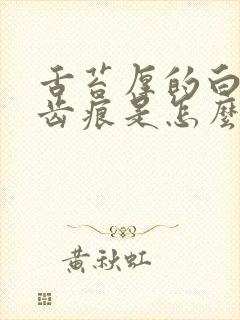 舌苔厚的白
齿痕是怎麼
黃秋虹